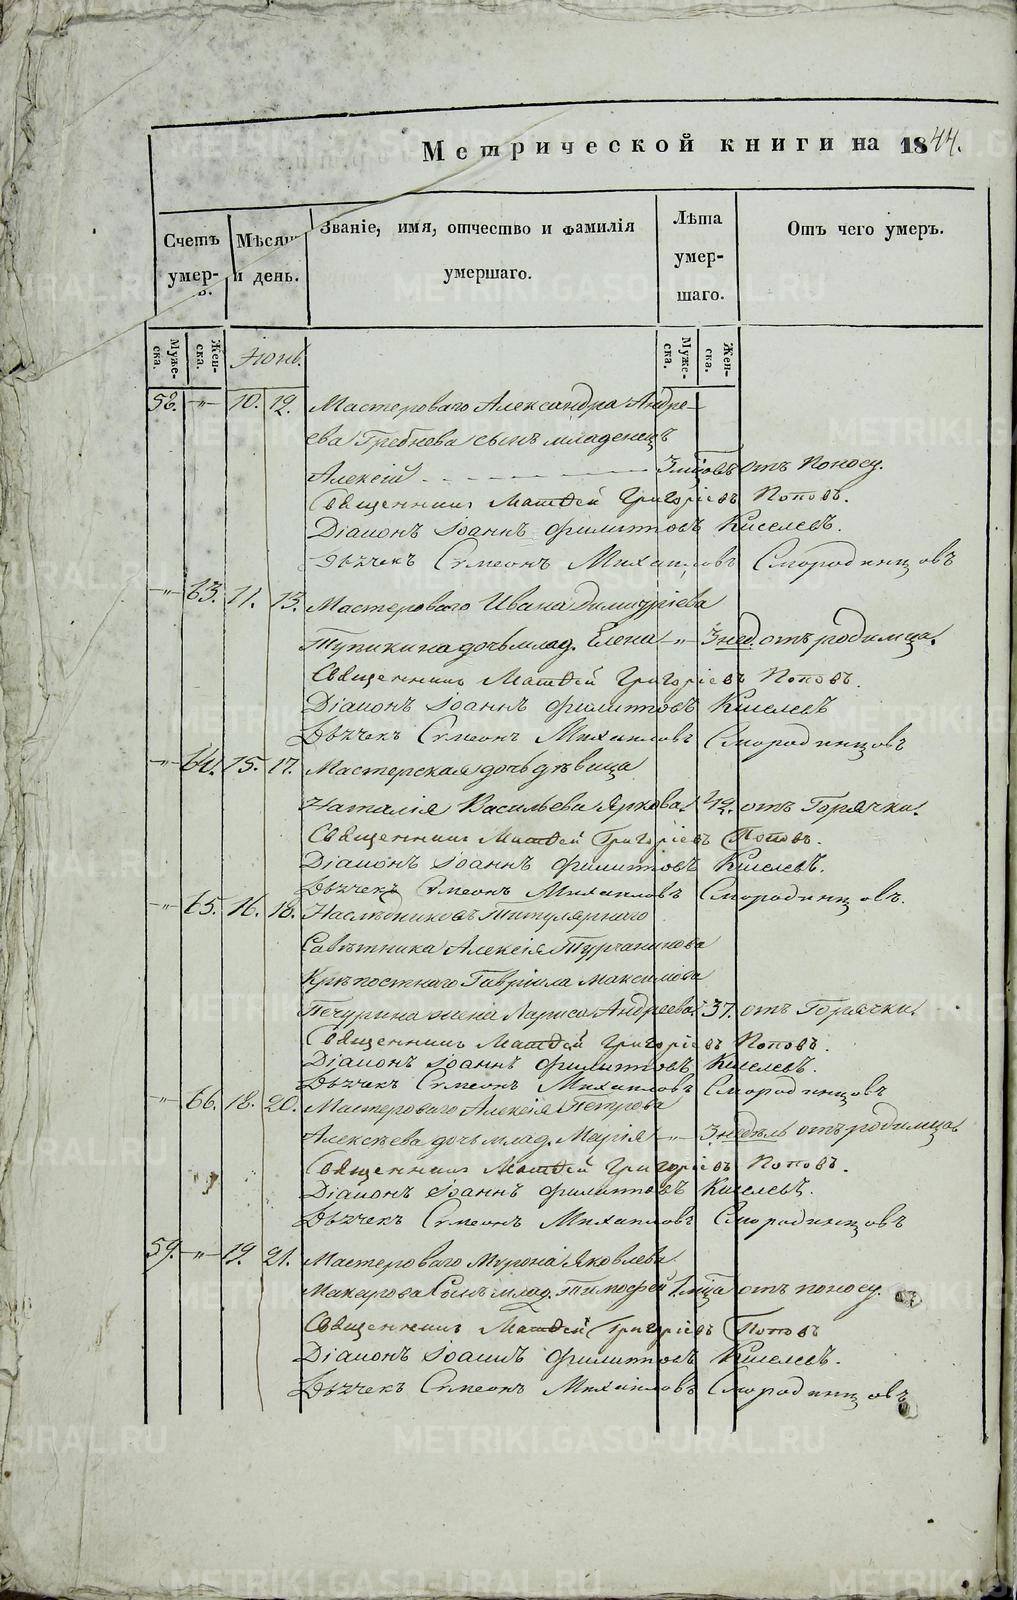 Метрической книги на 1844.
Счетъ умер-
Мѣсяц и день.
Званіе, имя, отчество и фамилія умершаго.
Лѣта умер-шаго.
Отъ чего умеръ.
Муже-ска. Жен-ска. Іюнь. Муже-ска. Жен-ска.
58. -"- 10. 12. Мастероваго Александра Андре-
ева Гребнева сынъ младенецъ
Алексій 3 мцовъ отъ поносу.
Священникъ Матѳей Григоріевъ Поповъ.
Діаконъ Іоаннъ Филипповъ Киселевъ.
Дьячекъ Симеонъ Михаиловъ Смородинцовъ
-"- 63. 11. 13. Мастероваго Ивана Димитріева
Тупикина дочь млад. Елена -"- 3 нед. отъ родимца.
Священникъ Матѳей Григоріевъ Поповъ.
Діаконъ Іоаннъ Филипповъ Киселевъ
Дьячекъ Симеонъ Михаиловъ Смородинцовъ
-"- 64. 15. 17. Мастерская дочь дѣвица
Наталія Васильева Яркова 42. отъ Горячки.
Священникъ Матѳей Григоріевъ Поповъ.
Діаконъ Іоаннъ Филипповъ Киселевъ.
Дьячекъ Симеонъ Михаиловъ Смородинцовъ.
-"- 65. 16. 18. Наслѣдниковъ Титулярнаго
Совѣтника Алексія Турчанинова
Крѣпостнаго Гавріила Максимова
Печурина жена Лариса Андреева 37. отъ Горячки
Священникъ Матѳей Григоріевъ Поповъ.
Діаконъ Іоаннъ Филипповъ Киселевъ.
Дьячекъ Симеонъ Михаиловъ Смородинцовъ
-"- 66. 18. 20. Мастероваго Алексія Петрова
Алексѣева дочь млад. Марія -"- 3 недѣль отъ родимца.
Священникъ Матѳей Григоріевъ Поповъ.
Діаконъ Іоаннъ Филипповъ Киселевъ.
Дьячекъ Симеонъ Михаиловъ Смородинцовъ
59. -"- 19. 21. Мастероваго Мирона Яковлева
Макарова Сынъ млад. Тимофей 1 мца отъ поносу.
Священникъ Матѳей Григоріевъ Поповъ
Діаконъ Іоаннъ Филипповъ Киселевъ.
Дьячекъ Симеонъ Михаиловъ Смородинцовъ
METRIKI.GASO-URAL.RU